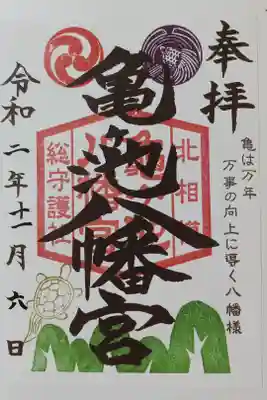 奉拝
亀は万年
万事の向上に導く八幡様
亀ヶ池八幡宮
北相模
総守護社
令和二年十一月六日